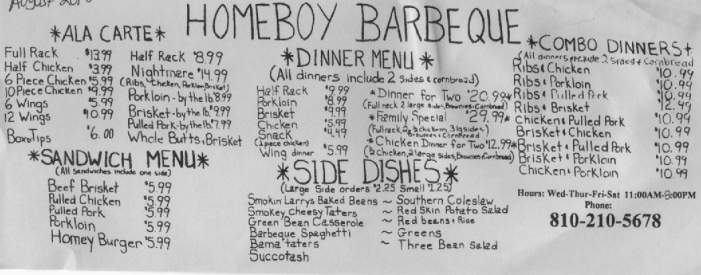 August
HOMEBOY BARBEQUE
*ALA CARTE*
Full Rack $13.99
Half Chicken $3.99
6 Piece Chicken $5.99
10 Piece Chicken $9.99
6 Wings $5.99
12 Wings $10.99
Box Tips $6.00
Half Rack $8.99
Nightmare $14.99
(Ribs, Chicken, Porkloin, Brisket)
Porkloin - by the lb $8.99
Brisket - by the lb. $9.99
Pulled Pork - by the lb $7.99
Whole Butts & Brisket
*SANDWICH MENU*
(All sandwiches include one side)
Beef Brisket $5.99
Pulled Chicken $5.99
Pulled Pork $5.99
Porkloin $5.99
Homey Burger $5.99
*DINNER MENU*
(All dinners include 2 sides & cornbread)
Half Rack $9.99
Porkloin $8.99
Brisket $9.99
Chicken $5.99
Snack $4.49
(2 piece chicken)
Wing dinner $5.99
*Dinner for Two $20.99*
(Full rack 2 large sides, Brownies & Cornbread)
*Family Special $29.99*
(Full rack, ½ chicken, 3 lg sides)
Brownies & Cornbread
*Chicken Dinner for Two $12.99*
(½ Chicken, 2 large sides, Brownies, Cornbread)
*SIDE DISHES*
(Large Side orders $2.25 Small $1.25)
Smokin Larrys Baked Beans ~ Southern Coleslaw
Smokey Cheesy Taters ~ Red Skin Potato Salad
Green Bean Casserole ~ Red beans & Rice
Barbeque Spaghetti ~ Greens
Bama taters ~ Three Bean Salad
Succotash
*COMBO DINNERS*
(All dinners include 2 sides & Cornbread
Ribs & Chicken $10.99
Ribs & Porkloin $10.99
Ribs & Pulled Pork $10.99
Ribs & Brisket $12.49
Chicken & Pulled Pork $10.99
Brisket & Chicken $10.99
Brisket & Pulled Pork $10.99
Brisket & Porkloin $10.99
Chicken & Porkloin $10.99
Hours: Wed-Thur-Fri-Sat 11:00AM-8:00PM
Phone:
810-210-5678